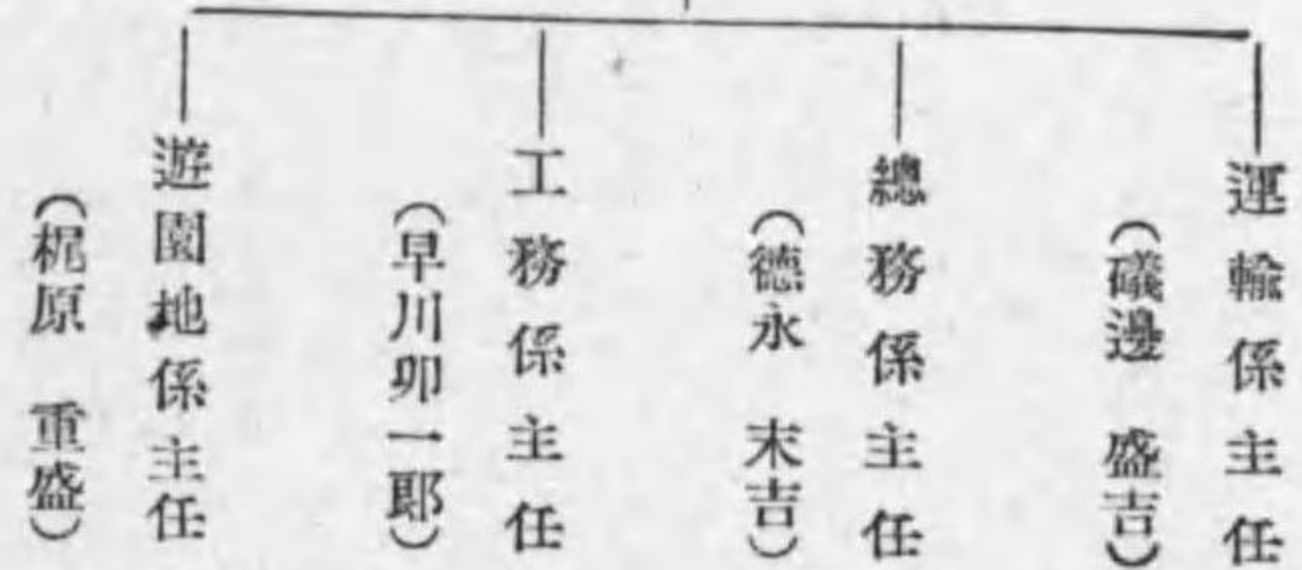 運輸係主任
(磯邊 盛吉)
總務係主任
(德永 末吉)
工務係主任
(早川卯一郎)
遊園地係主任
(梶原 重盛)